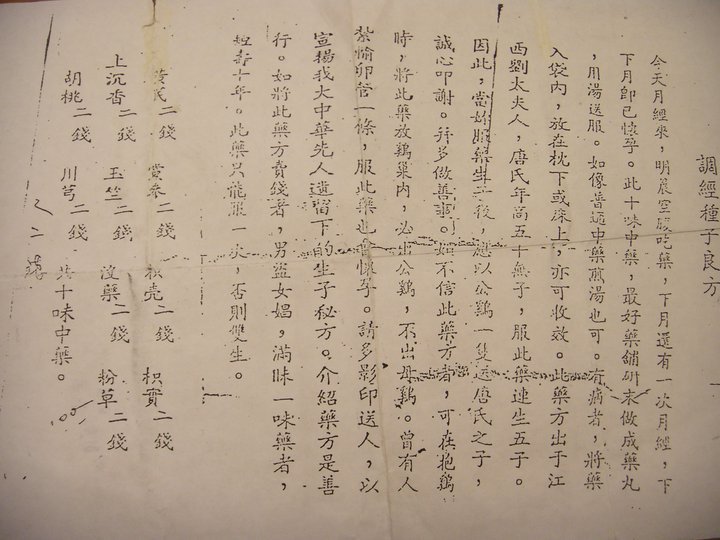 調經種子良方
今天月經來，明晨空腹吃藥，下月還有一次月經，下
下月即已懷孕。此十味中藥，最好藥舖研末做成藥丸
，用湯送服。如像普通中藥煎湯也可。有病者，將藥
入袋內，放在枕下或床上，亦可收效。此藥方出于江
西劉太夫人，唐氏年高五十無子，服此藥連生五子。
因此，當妳服藥生子後，應以公鷄一隻送唐氏之子，
誠心叩謝。并多做善事。如不信此藥方者，可在抱鷄
時，將此藥放鷄巢內，必出公鷄，不出母鷄。曾有人
紮愉卵管一條，服此藥也會懷孕。請多影印送人，以
宣揚我大中華先人遺留下的生子秘方。介紹藥方是善
行。如將此藥方賣錢者，男盜女娼，滿昧一味藥者，
短壽十年。此藥只能服一次，否則雙生。
黃芪二錢 黨參二錢 枳壳二錢 枳實二錢
上沉香二錢 玉竺二錢 沒藥二錢 粉草二錢
胡桃二錢 川芎二錢 共十味中藥。